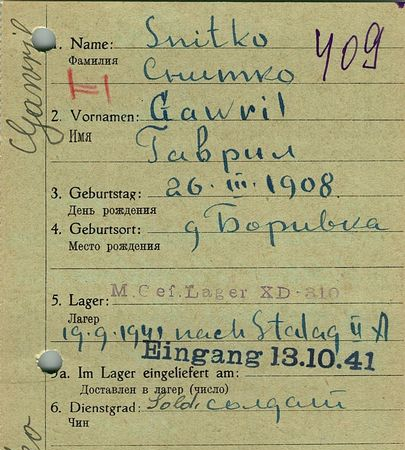 1. Name: Snitko
Фамилия Снитко
409
2. Vornamen: Gawril
Имя Гаврил
3. Geburtstag: 26. III. 1908
День рождения
4. Geburtsort: д Боривка
Место рождения
M. Gef. Lager XD-310
5. Lager:
Лагер
19.9.1941 nach Stalag II A
Eingang 13.10.41
5a. Im Lager eingeliefert am:
Доставлен в лагер (число)
6. Dienstgrad: Sold. солдат
Чин
Gawril